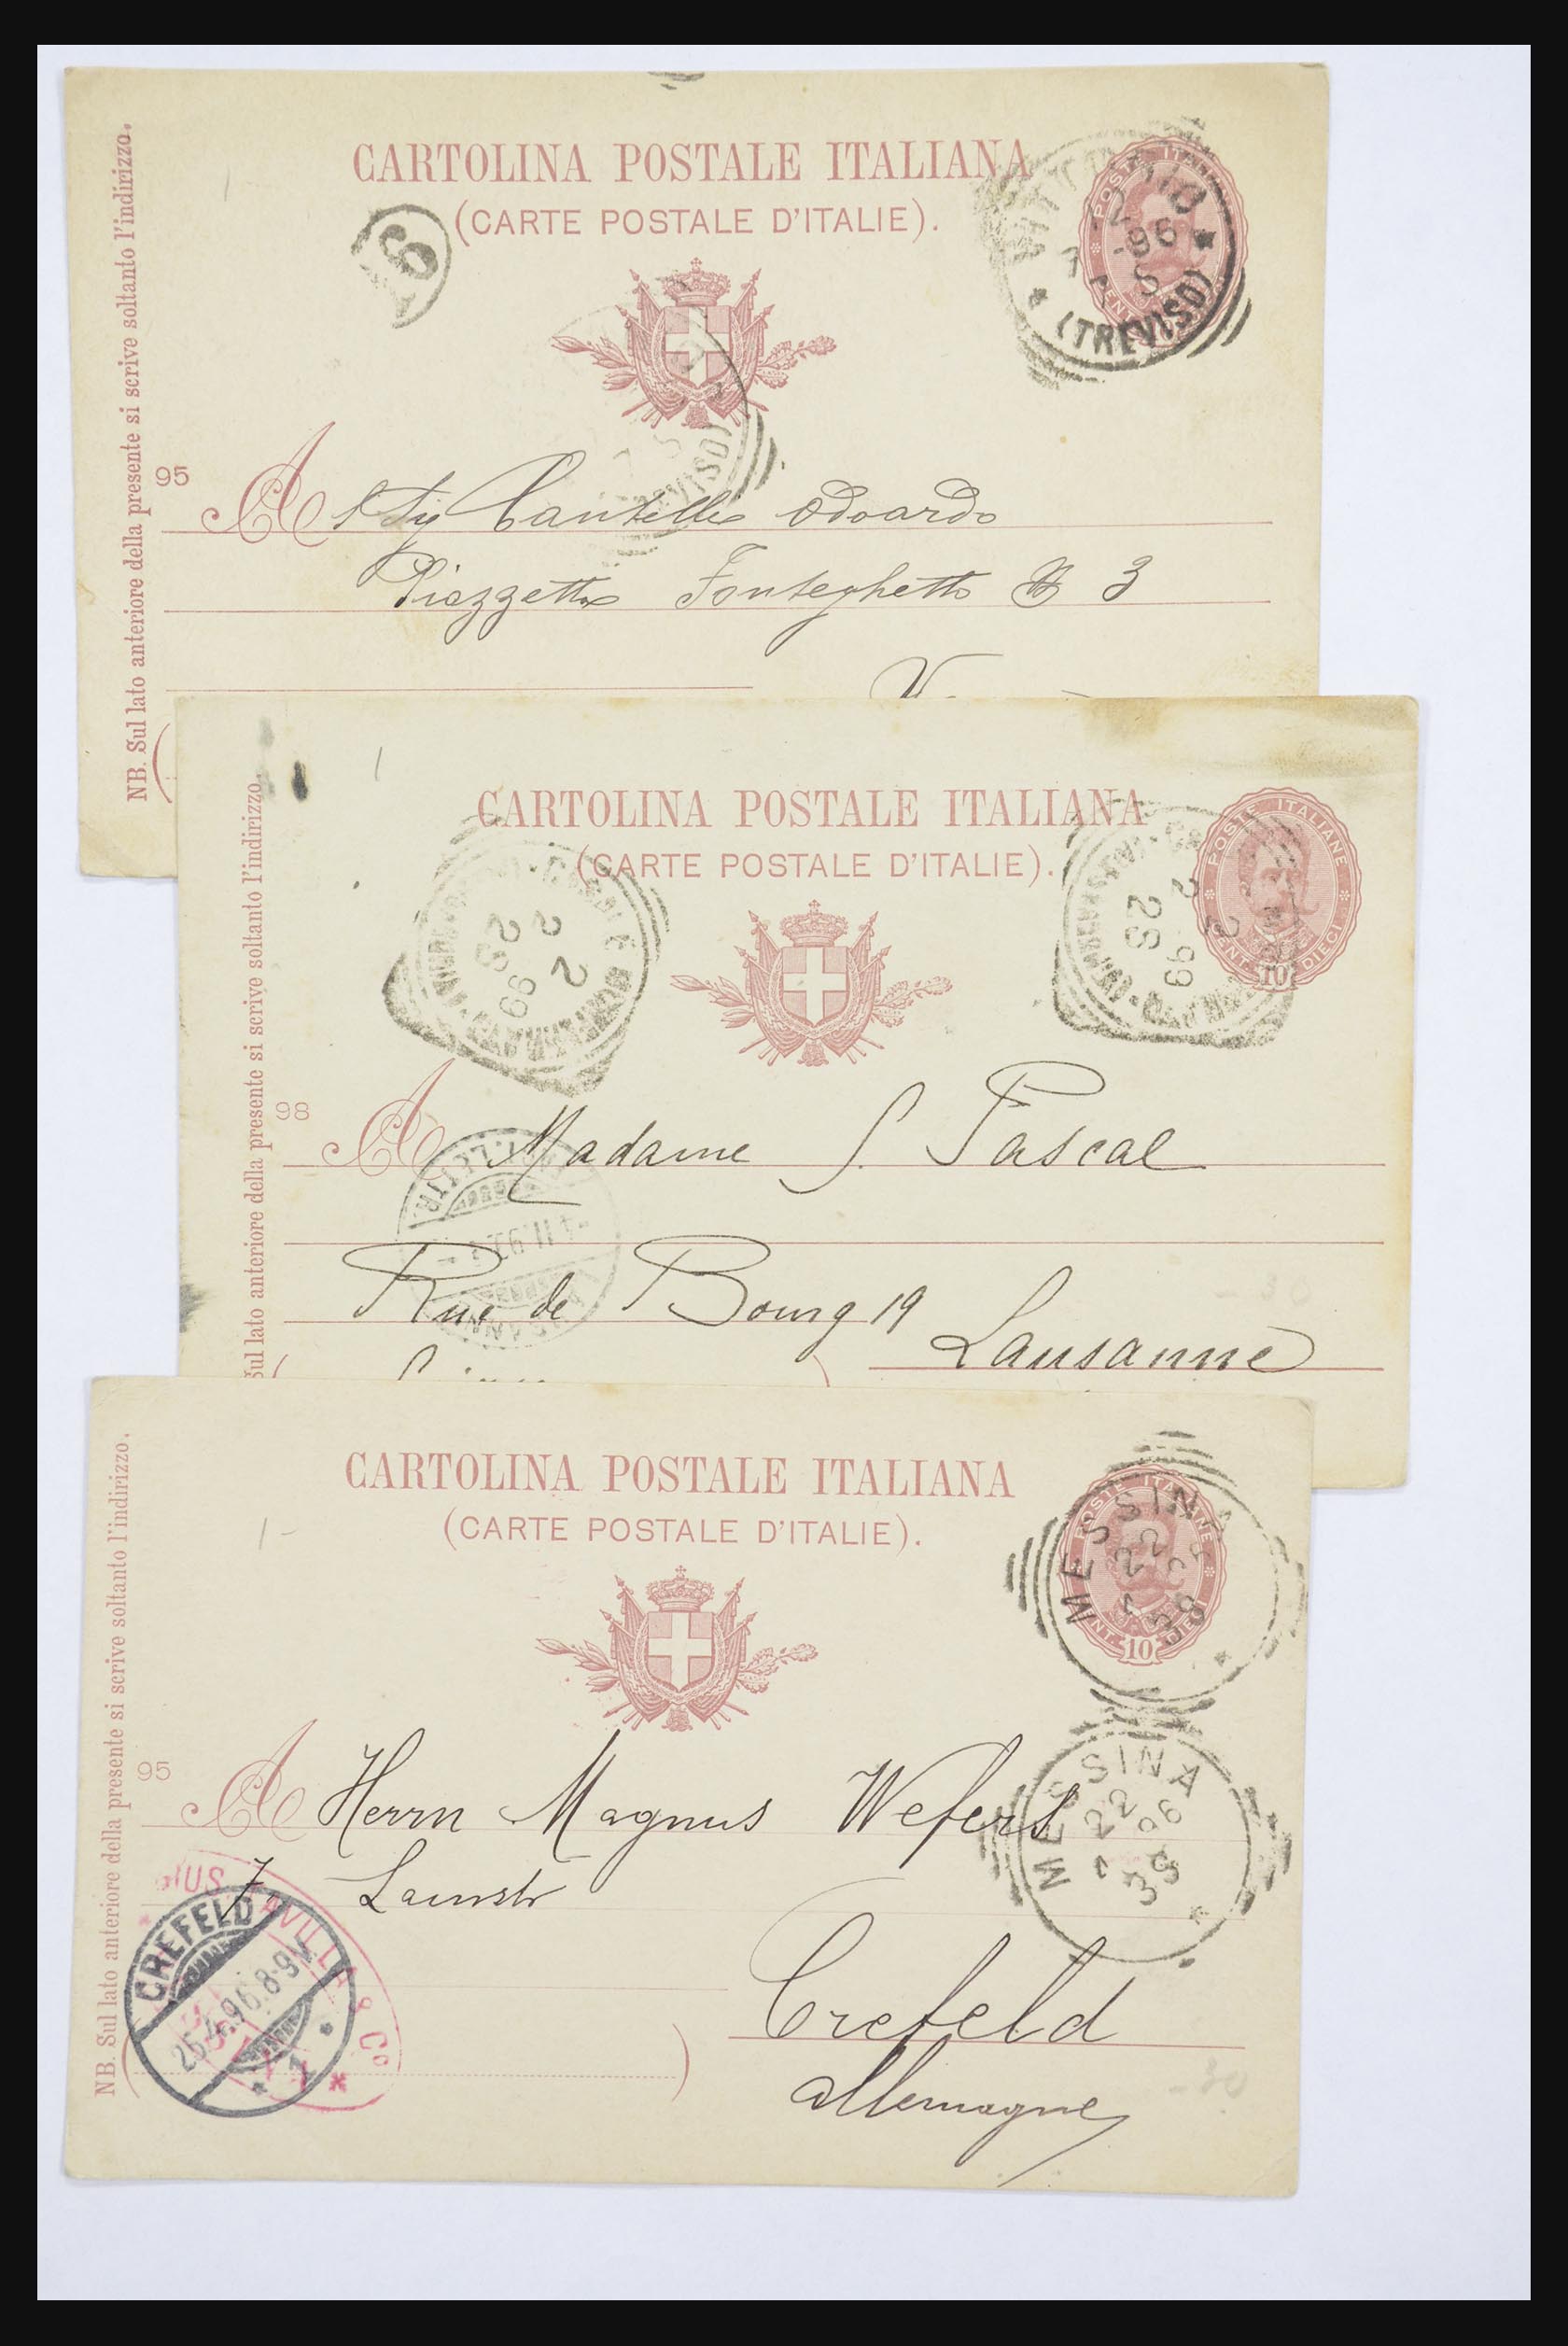 CARTOLINA POSTALE ITALIANA
(CARTE POSTALE D'ITALIE).
NB. Sul lato anteriore della presente si scrive soltanto l'indirizzo.
POSTE
96
(TREVISO)
95
A Odoardo
Piazzetta Fonteghetto 3
CARTOLINA POSTALE ITALIANA
(CARTE POSTALE D'ITALIE).
Sul lato anteriore della presente si scrive soltanto l'indirizzo.
POSTE ITALIANE
CENT. 10 DIECI
2 99
2S
2 99
2S
98
A Madame S. Pascal
Rue de Bourg 19
Lausanne
CARTOLINA POSTALE ITALIANA
(CARTE POSTALE D'ITALIE).
NB. Sul lato anteriore della presente si scrive soltanto l'indirizzo.
1-
POSTE ITALIANE
10 DIECI
MESSINA
22
3S
MESSINA
22
96
3S
95
A Herrn Magnus Wefers
7.
Crefeld
Allemagne
CREFELD
25.4.96.8-9V.
1
GIUS.
& Co
-30